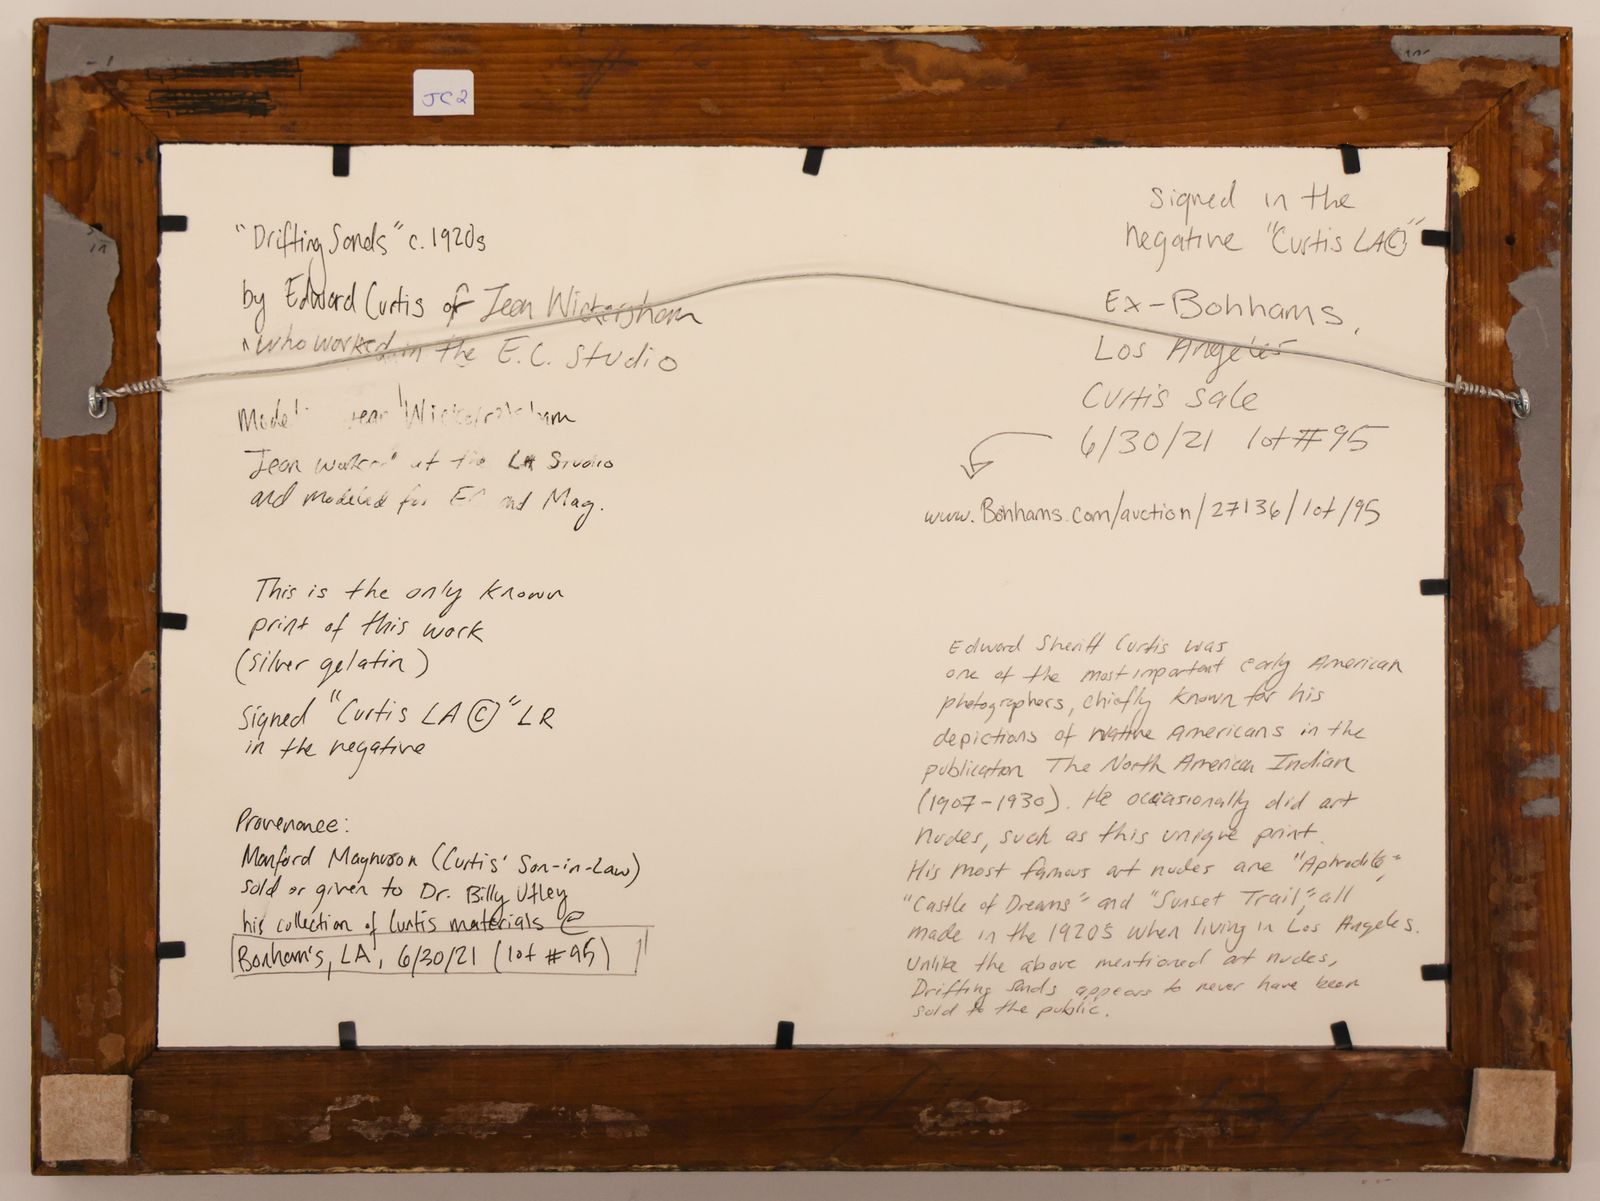 JC2
"Drifting Sands" c. 1920s
by Edward Curtis of Jean Wickersham
"who worked in the E.C. Studio
Model Jean Wickersham
Jean worked at the LA Studio
and modeled for EC and Mag.
This is the only known
print of this work
(silver gelatin)
Signed "Curtis LA ©" LR
in the negative
Provenance:
Manford Magnuson (Curtis' Son-in-Law)
sold or given to Dr. Billy Utley
his collection of Curtis materials @
Bonham's, LA, 6/30/21 (lot #95)
Signed in the
negative "Curtis LA©"
Ex-Bonhams,
Los Angeles
Curtis sale
6/30/21 lot #95
www.Bonhams.com/auction/27136/lot/95
Edward Sheriff Curtis was
one of the most important early American
photographers, chiefly known for his
depictions of Native Americans in the
publication The North American Indian
(1907-1930). He occasionally did art
nudes, such as this unique print.
His most famous art nudes are "Aphrodite,"
"Castle of Dreams" and "Sunset Trail," all
made in the 1920s when living in Los Angeles.
Unlike the above mentioned art nudes,
Drifting Sands appears to never have been
sold to the public.